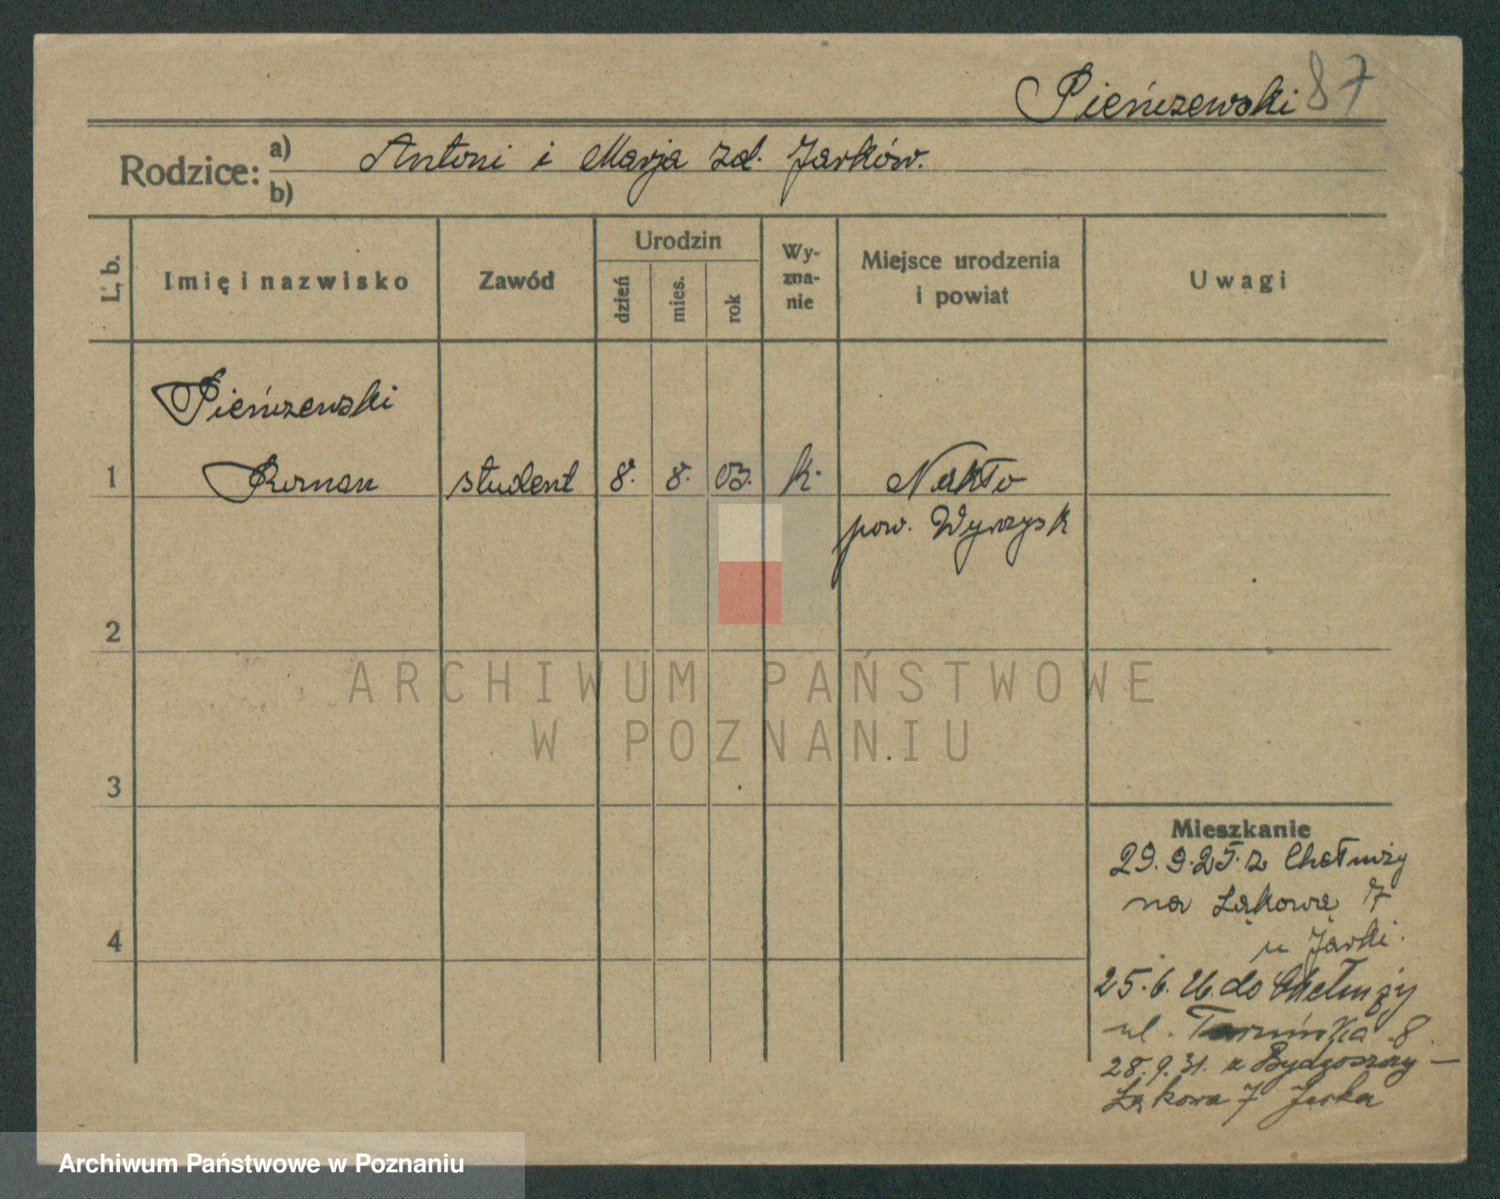 Pieńczewski 87
Rodzice: a) Antoni i Marja zd. Jarków.
b)
L. b.
Imię i nazwisko
Zawód
Urodzin
dzień
mies.
rok
Wy-
zna-
nie
Miejsce urodzenia
i powiat
Uwagi
Pieńczewski
1 Roman student 8. 8. 03. k. Nakło
pow. Wyrzysk
2
3
4
Mieszkanie
29.9.25. z Chełmży
na Łąkową 7
u Jarki.
25.6.26. do Chełmży
ul. 8.
28.9.31. z Bydgoszczy –
Łąkowa 7 Jarka
ARCHIWUM PAŃSTWOWE
W POZNANIU
Archiwum Państwowe w Poznaniu